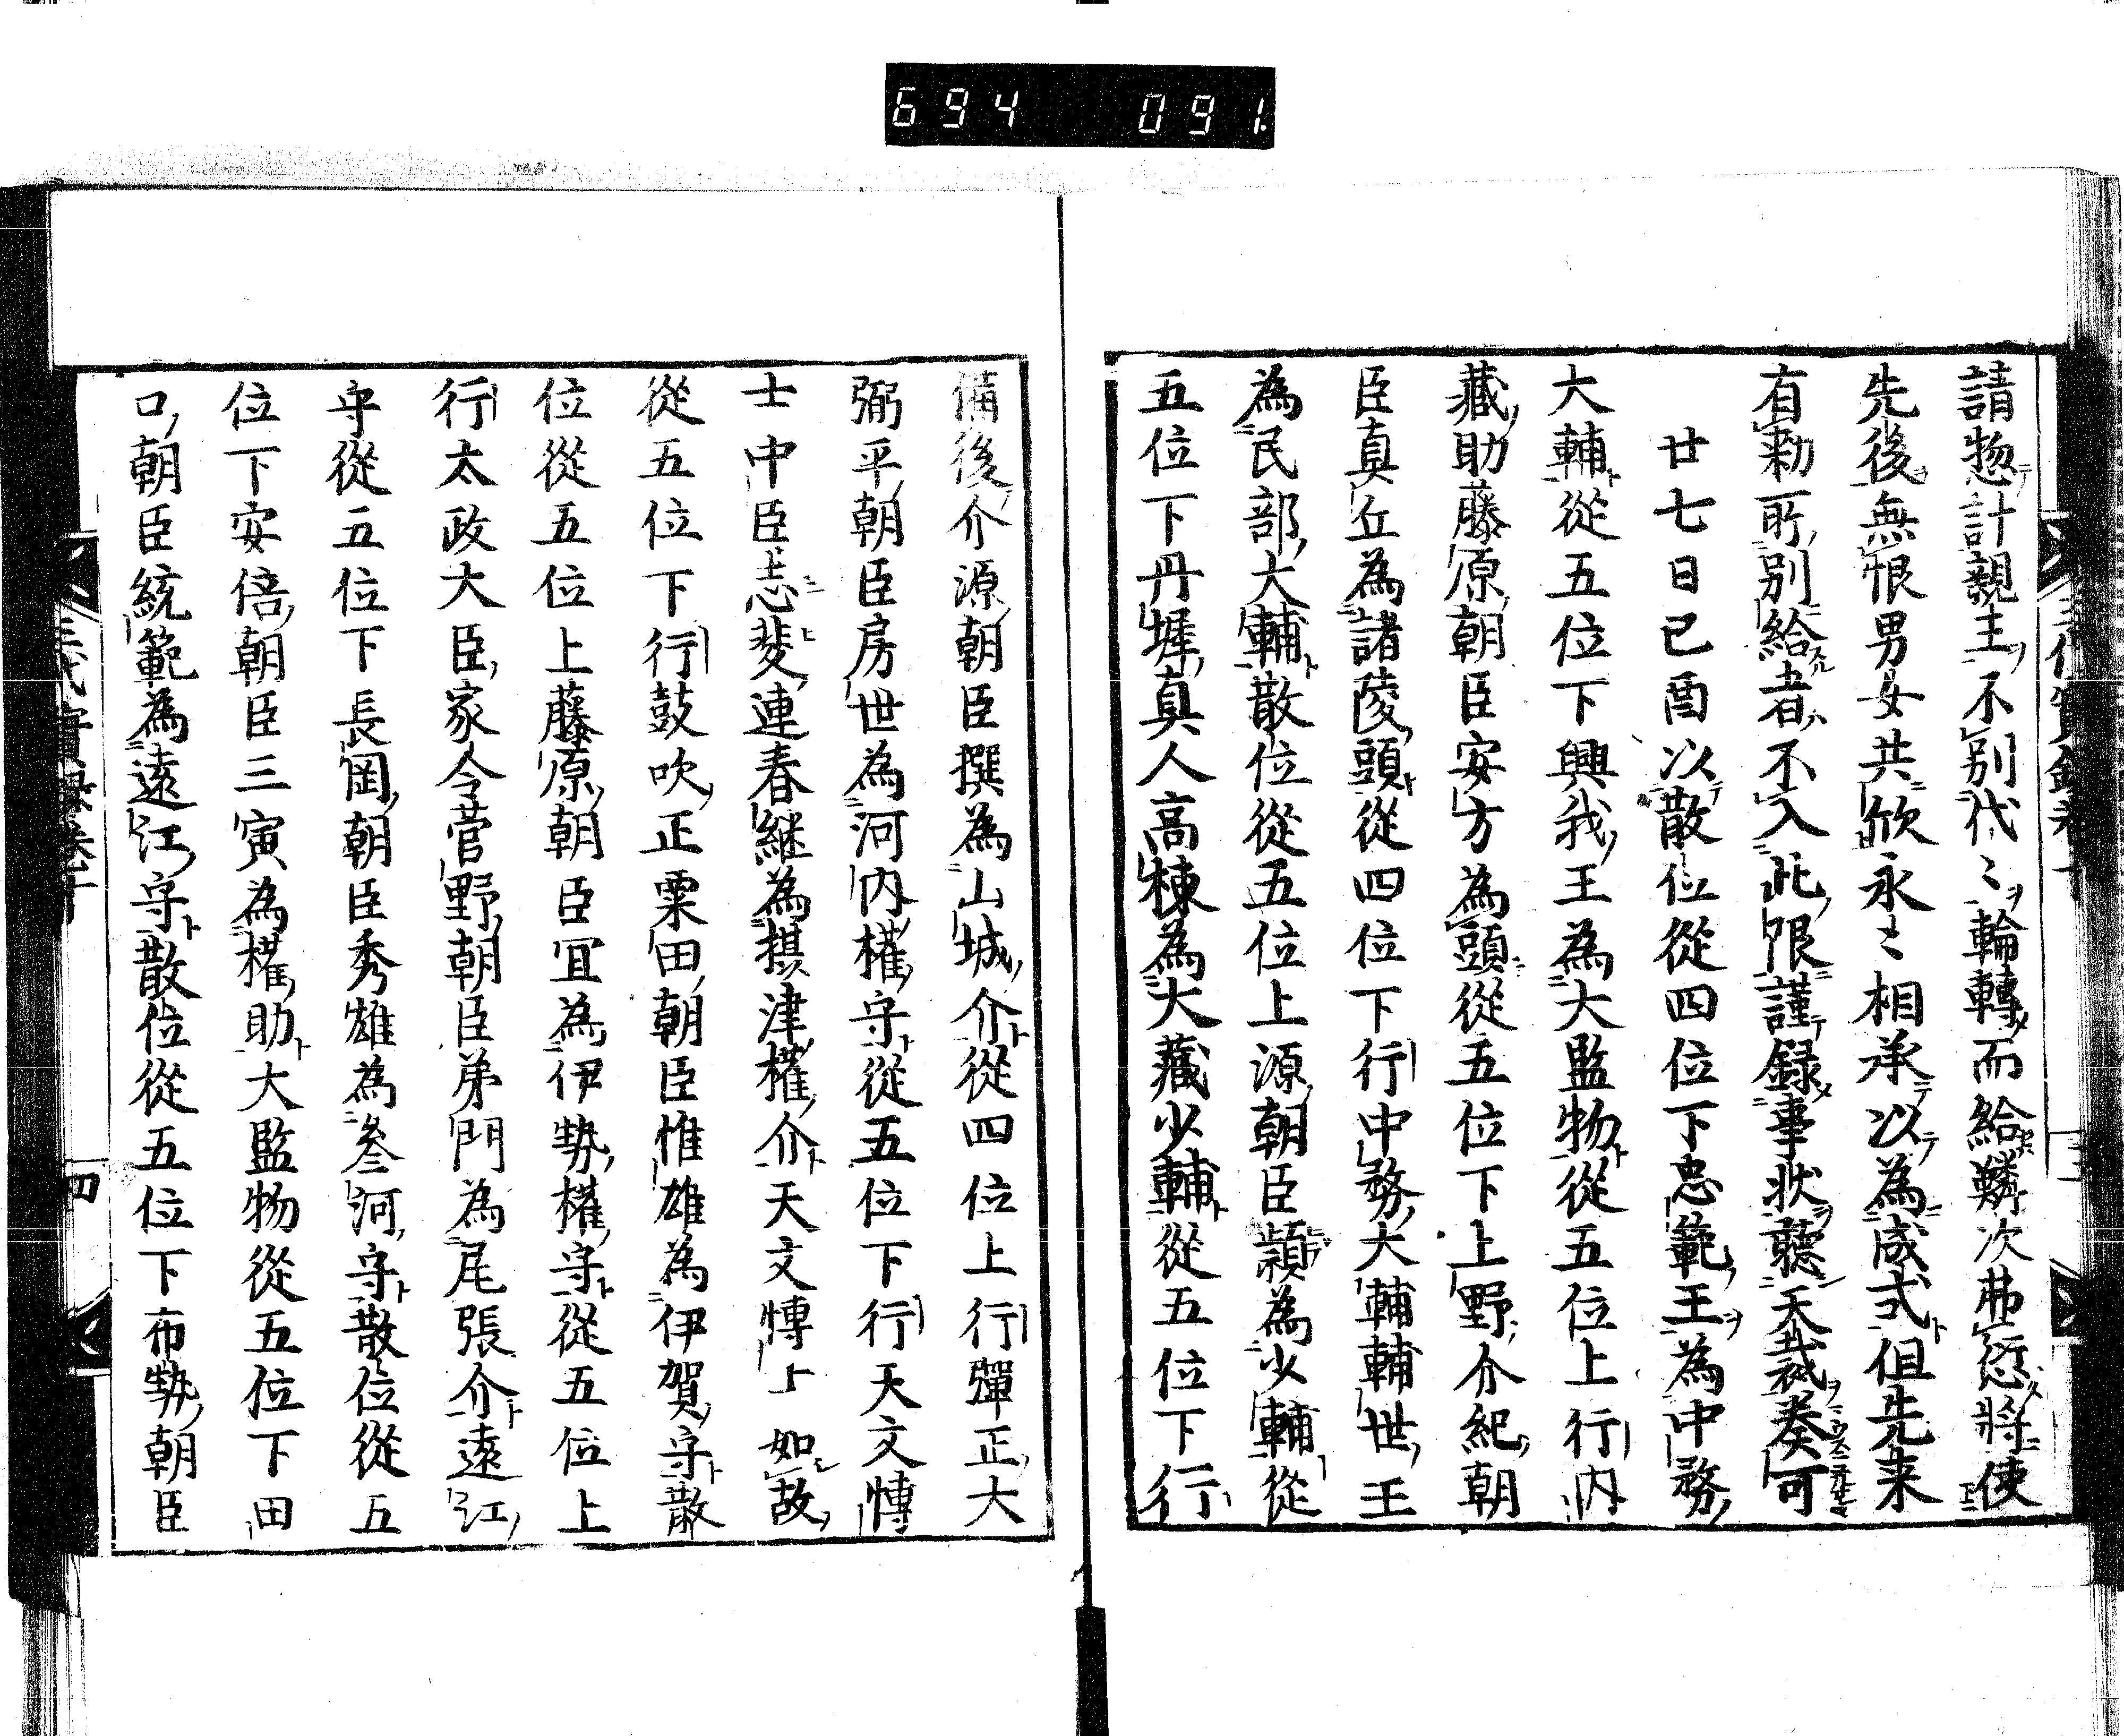 694 091.
請惣計親王不別代〻輪轉而給鱗次弗愆將使
先後無恨男女共欣永〻相承以為成式但先来
有勅所別給者不入此限謹録事状聽天裁奏可
廿七日己酉以散位從四位下忠範王為中務
大輔從五位下興我王為大監物從五位上行内
藏助藤原朝臣安方為頭從五位下上野介紀朝
臣真丘為諸陵頭從四位下行中務大輔輔世王
為民部大輔散位從五位上源朝臣頴為少輔從
五位下丹墀真人高棟為大藏少輔從五位下行
備後介源朝臣撰為山城介從四位上行彈正大
弼平朝臣房世為河内權守從五位下行天文博
士中臣志斐連春継為摂津權介天文博士如故
從五位下行鼓吹正粟田朝臣惟雄為伊賀守散
位從五位上藤原朝臣冝為伊勢權守從五位上
行太政大臣家令菅野朝臣弟門為尾張介遠江
守從五位下長岡朝臣秀雄為叅河守散位從五
位下安倍朝臣三寅為權助大監物從五位下田
口朝臣統範為遠江守散位從五位下布勢朝臣
三代實録卷十
四